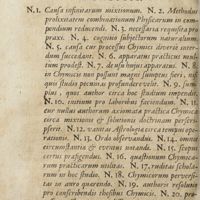 N.1. Causa infinitarum mixtionum. N. 2. Methodus
prolixitatem combinationum Physicarum in com-
pendium reducendi. N. 3. necessaria requisita pro
praxi. N. 4. cognitio subjectorum naturalium.
N. 5. causa cur processus Chymici diversè inter-
dum succedant. N. 6. apparatus practicus mul-
tum prodest. N. 7. de usu hujus apparatus. N. 8.
in Chymicis non possunt magni sumptus fieri, nisi
quis studii penitus se profundere velit. N. 9. sump-
tus, quos author circa hoc studium impendit.
N. 10. initium pro laboribus faciendum. N. 11.
cur nullus authorum axiomata practica Chymica
circa mixtiones & solutiones doctrinam perscri-
pserit. N. 12. vanitas Astrologica circa tempus ope-
rationis. N. 13. Ordo observandus. N. 14. omnes
circumstantiæ & eventus notandi. N. 15. sequens
certus præfigendus. N. 16. quæstionum Chymica-
rum practicarum utilitas. N. 17. ratione schola-
rum in hoc studio. N. 18. Chymicorum perversi-
tas in auro quærendo. N. 19. authoris resolutio
pro conscribendis thesibus Chymicis. N. 20. pro-